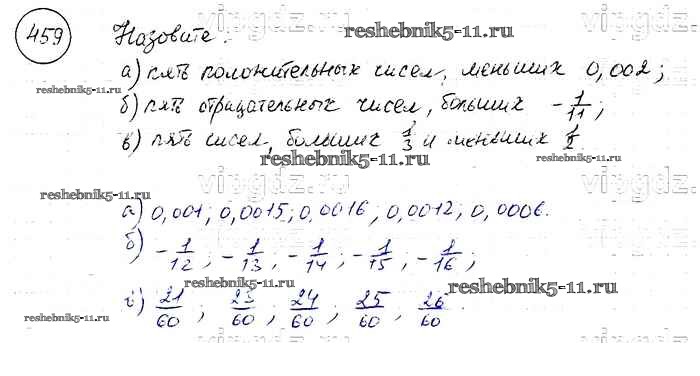 vipgdz.ru
459 Назовите:
reshebnik5-11.ru
а) пять положительных чисел, меньших 0,002;
reshebnik5-11.ru
б) пять отрицательных чисел, больших -1/11;
в) пять чисел, больших 1/3 и меньших 1/2.
reshebnik5-11.ru reshebnik5-11.ru
vipgdz.ru vipgdz.ru
reshebnik5-11.ru
а) 0,001; 0,0015; 0,0016; 0,0012; 0,0006.
б) -1/12; -1/13; -1/14; -1/15; -1/16;
reshebnik5-11.ru reshebnik5-11.ru
в) 21/60; 23/60; 24/60; 25/60; 26/60.
reshebnik5-11.ru reshebnik5-11.ru
vipgdz.ru